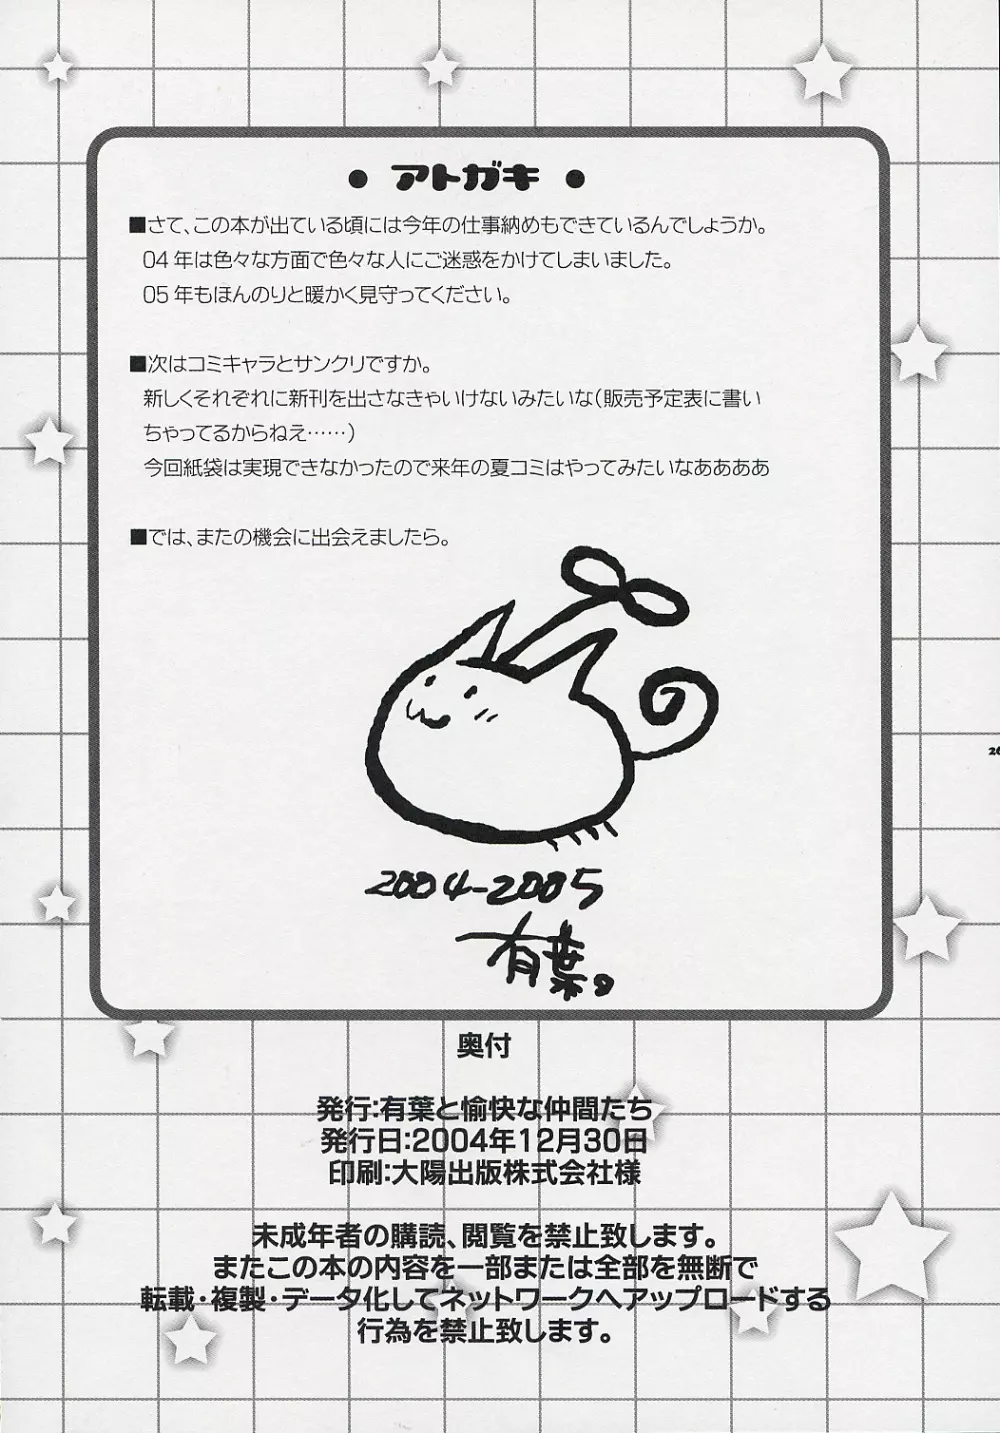 ● アトガキ ●
■さて、この本が出ている頃には今年の仕事納めもできているんでしょうか。
04年は色々な方面で色々な人にご迷惑をかけてしまいました。
05年もほんのりと暖かく見守ってください。
■次はコミキャラとサンクリですか。
新しくそれぞれに新刊を出さなきゃいけないみたいな(販売予定表に書い
ちゃってるからねえ……)
今回紙袋は実現できなかったので来年の夏コミはやってみたいなああああ
■では、またの機会に出会えましたら。
2004-2005
有葉。
奥付
発行:有葉と愉快な仲間たち
発行日:2004年12月30日
印刷:大陽出版株式会社様
未成年者の購読、閲覧を禁止致します。
またこの本の内容を一部または全部を無断で
転載・複製・データ化してネットワークへアップロードする
行為を禁止致します。